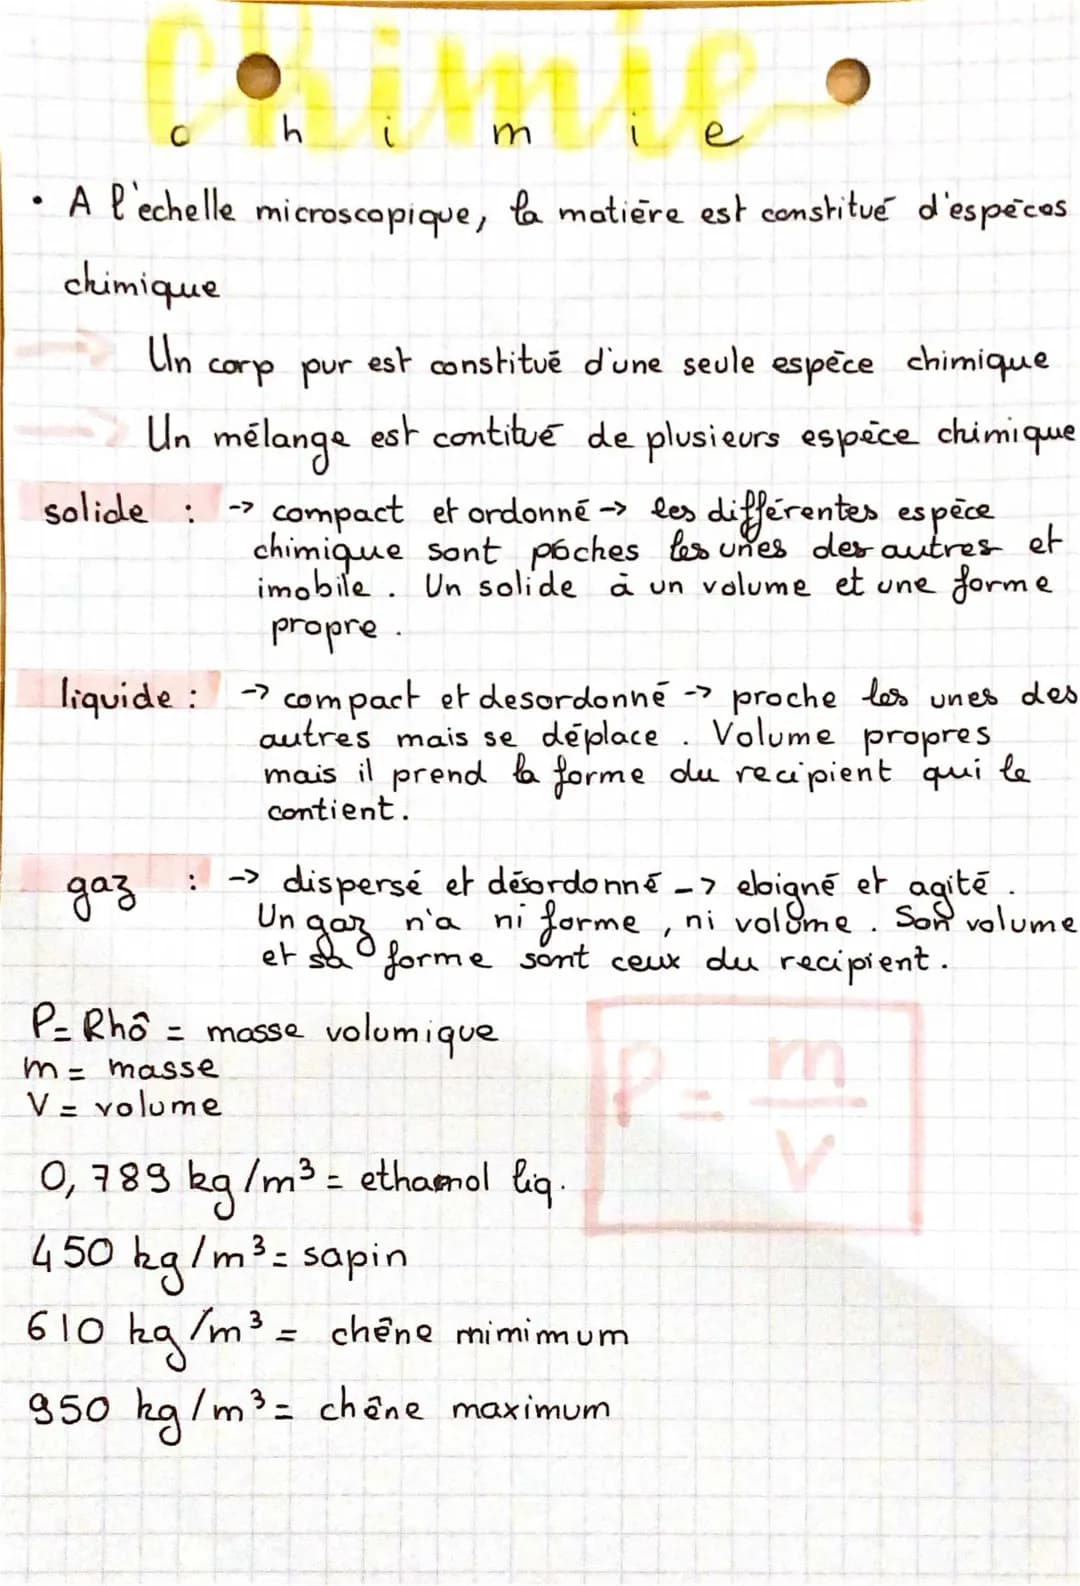 Chimie
c h i m i e
• A l'echelle microscopique, la matière est constitué d'espèces
chimique
Un corp pur est constitué d'une seule espèce chimique
Un mélange est contitué de plusieurs espèce chimique
solide : -> compact et ordonné -> les différentes espèce
chimique sont poches les unes des autres et
imobile. Un solide à un volume et une forme
propre.
liquide : -> compact et desordonné -> proche les unes des
autres mais se déplace. Volume propres
mais il prend la forme du recipient qui le
contient.
gaz : -> dispersé et désordonné -> eloigné et agité.
Un gaz n'a ni forme, ni volume. Son volume
et sa forme sont ceux du recipient.
P = Rhô = masse volumique
m = masse
V = volume
P = m/V
0,789 kg/m³ = ethamol liq.
450 kg/m³ = sapin
610 kg/m³ = chêne mimimum
950 kg/m³ = chêne maximum